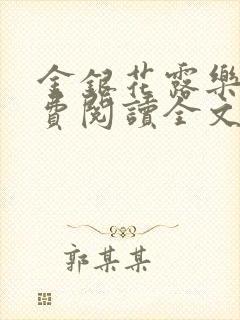 金銀花露樂
費閱讀全文
郭某某